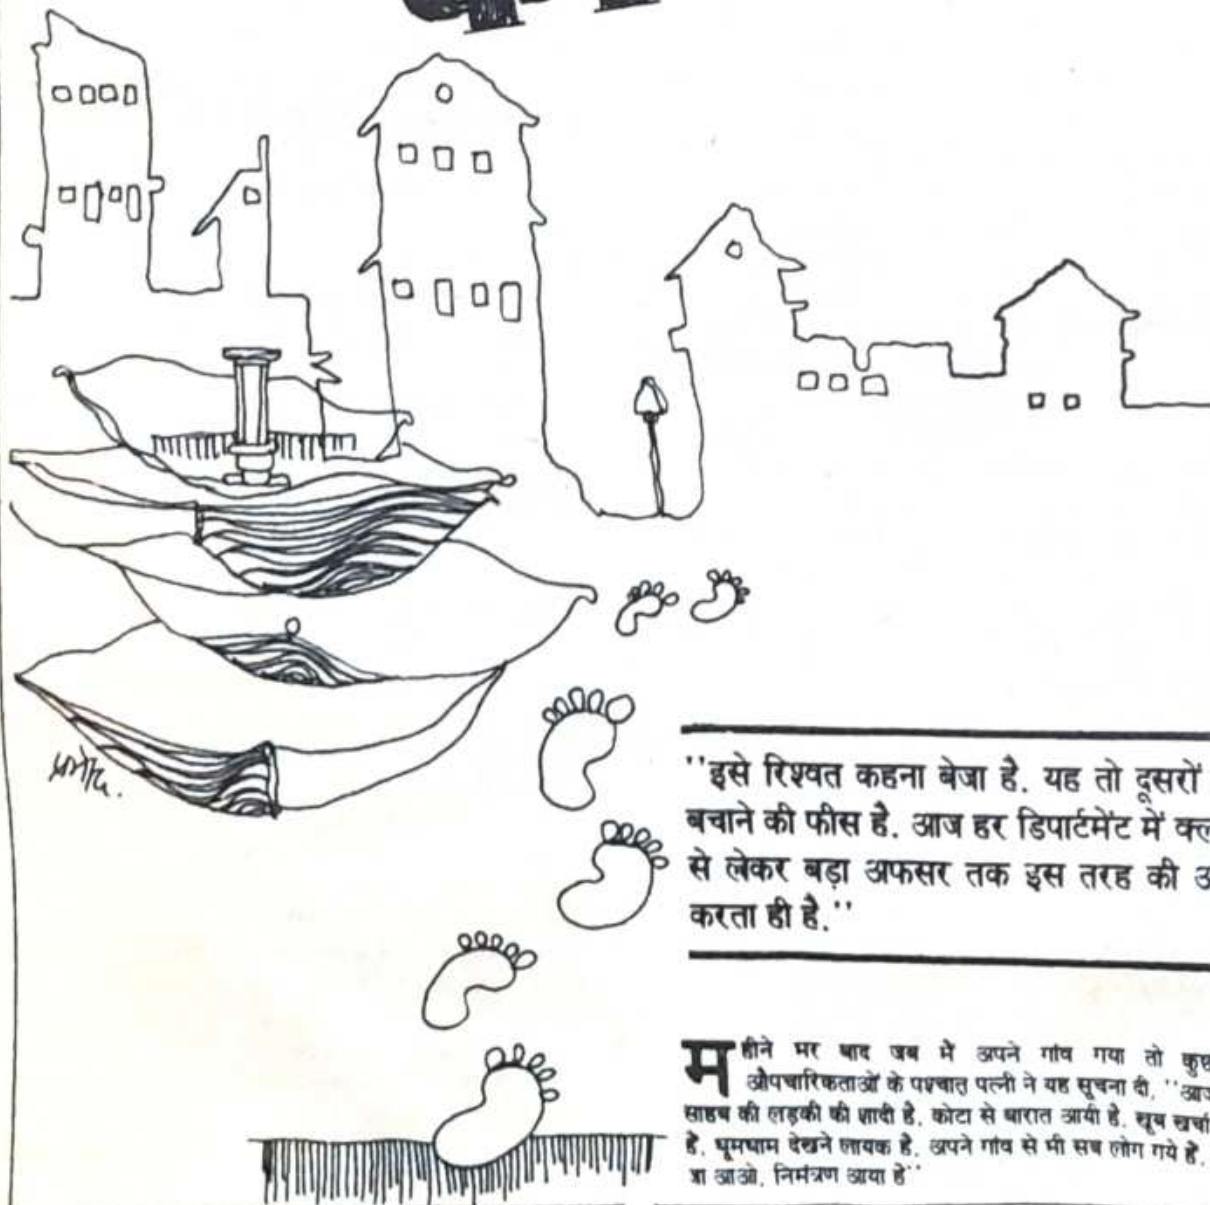 प्रमोद.
''इसे रिश्वत कहना बेजा है. यह तो दूसरों
बचाने की फीस है. आज हर डिपार्टमेंट में
से लेकर बड़ा अफसर तक इस तरह की
करता ही है.''
महीने भर बाद जब मैं अपने गांव गया तो कुछ
औपचारिकताओं के पश्चात् पत्नी ने यह सूचना दी, ''आज
साहब की लड़की की शादी है. कोटा से बारात आयी है. खूब
है. धूमधाम देखने लायक है. अपने गांव से भी सब लोग गये हैं.
आओ. निमंत्रण आया है''